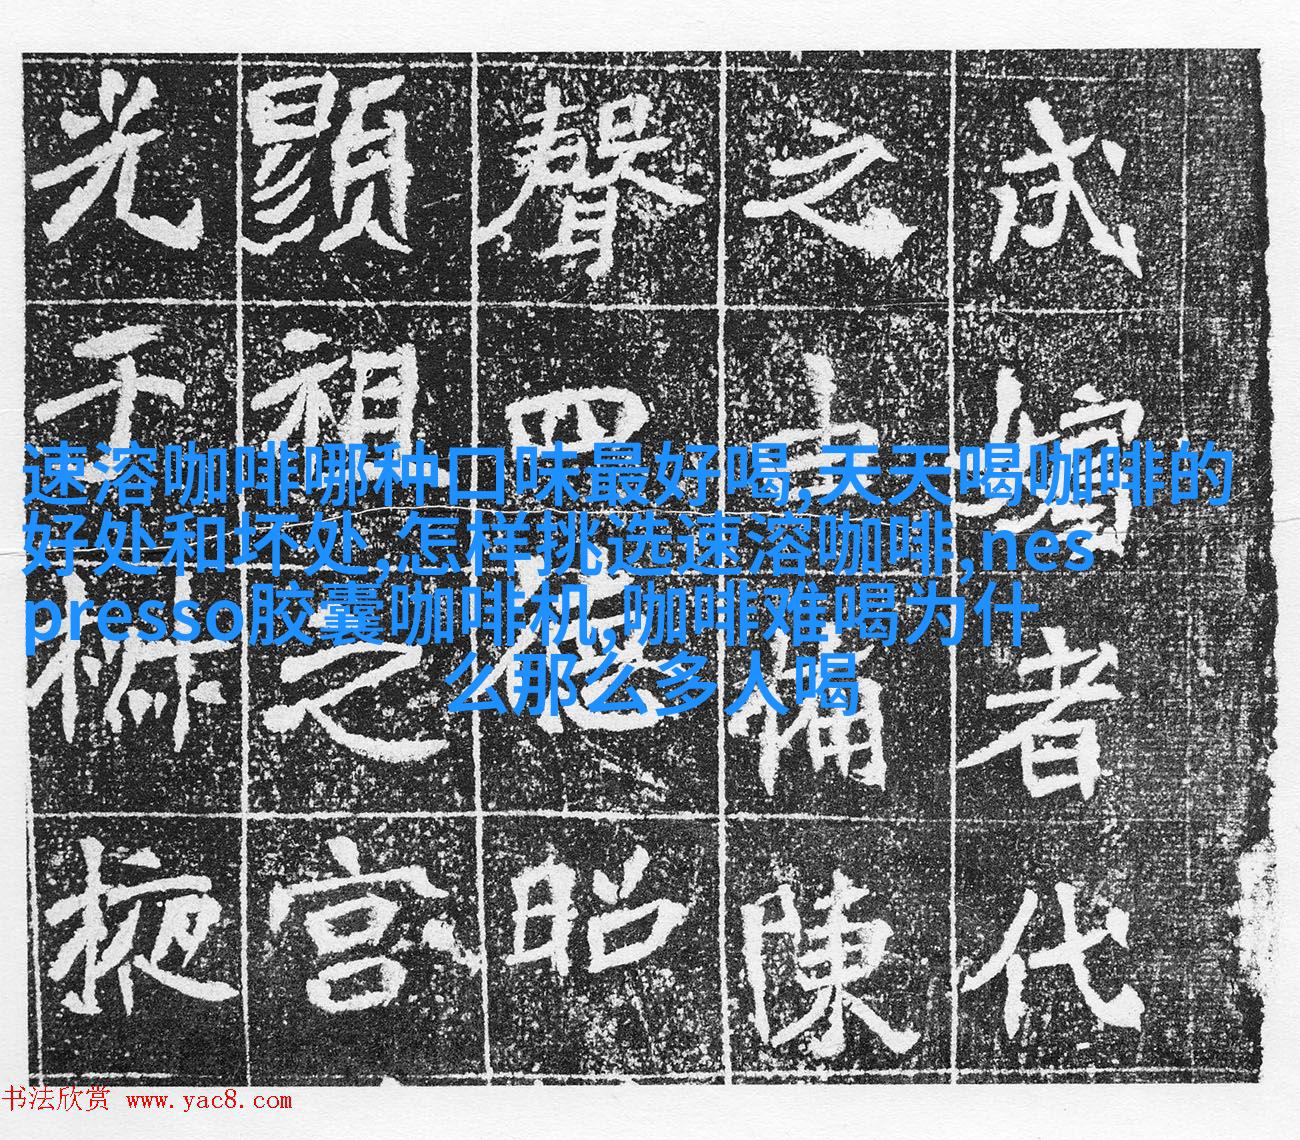 成嬪者代
之備陳
聲四德昭
顯祖之宮
光于椒掖
速溶咖啡哪种口味最好喝,天天喝咖啡的
好处和坏处,怎样挑选速溶咖啡,nes
presso胶囊咖啡机,咖啡难喝为什
么那么多人喝
书法欣赏 www.yac8.com